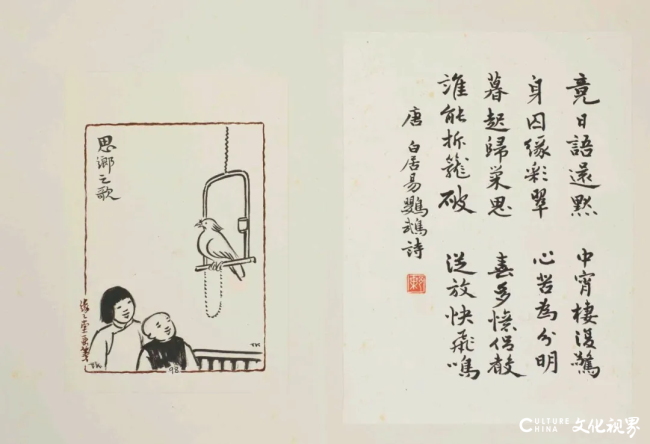 竟日語還默 中宵棲復驚
身囚緣彩翠 心苦為分明
暮起歸巢思 春多憶侶聲
誰能拆籠破 從放快飛鳴
唐 白居易鸚鵡詩
思鄉之歌
緣緣堂畫箋
TK
TK
98
CULTURE CHINA 文化视界